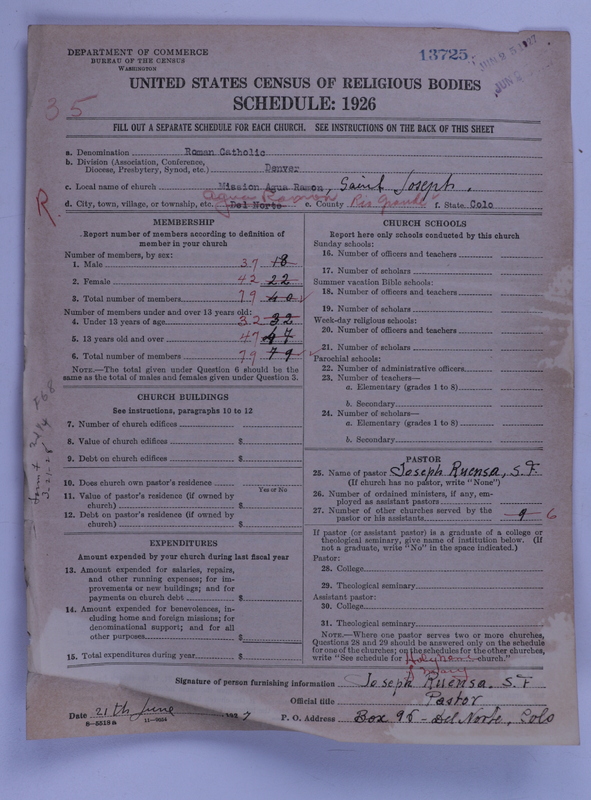 DEPARTMENT OF COMMERCE
BUREAU OF THE CENSUS
WASHINGTON
13725
JUN 25 1927
JUN 2
UNITED STATES CENSUS OF RELIGIOUS BODIES
SCHEDULE: 1926
35
FILL OUT A SEPARATE SCHEDULE FOR EACH CHURCH. SEE INSTRUCTIONS ON THE BACK OF THIS SHEET
a. Denomination Roman Catholic
b. Division (Association, Conference,
Diocese, Presbytery, Synod, etc.) Denver
c. Local name of church Mission Agua Ramon, Saint Joseph.
Agua Ramon
R
d. City, town, village, or township, etc. Del Norte e. County Rio Grande f. State Colo
MEMBERSHIP
Report number of members according to definition of
member in your church
Number of members, by sex:
1. Male 37 18
2. Female 42 22
3. Total number of members 79 40
Number of members under and over 13 years old:
4. Under 13 years of age 32 32
5. 13 years old and over 47 47
6. Total number of members 79 79
NOTE.—The total given under Question 6 should be
same as the total of males and females given under Question 3.
CHURCH BUILDINGS
See instructions, paragraphs 10 to 12
7. Number of church edifices
8. Value of church edifices $
9. Debt on church edifices $
10. Does church own pastor's residence
Yes or No
11. Value of pastor's residence (if owned by
church) $
12. Debt on pastor's residence (if owned by
church) $
EXPENDITURES
Amount expended by your church during last fiscal year
13. Amount expended for salaries, repairs,
and other running expenses; for im-
provements or new buildings; and for
payments on church debt $
14. Amount expended for benevolences, in-
cluding home and foreign missions; for
denominational support; and for all
other purposes $
15. Total expenditures during year $
CHURCH SCHOOLS
Report here only schools conducted by this church
Sunday schools:
16. Number of officers and teachers
17. Number of scholars
Summer vacation Bible schools:
18. Number of officers and teachers
19. Number of scholars
Week-day religious schools:
20. Number of officers and teachers
21. Number of scholars
Parochial schools:
22. Number of administrative officers
23. Number of teachers—
a. Elementary (grades 1 to 8)
b. Secondary
24. Number of scholars—
a. Elementary (grades 1 to 8)
b. Secondary
PASTOR
25. Name of pastor Joseph Ruensa, S.F.
(If church has no pastor, write "None")
26. Number of ordained ministers, if any, em-
ployed as assistant pastors
27. Number of other churches served by the
pastor or his assistants 9 6
If pastor (or assistant pastor) is a graduate of a college or
theological seminary, give name of institution below. (If
not a graduate, write "No" in the space indicated.)
Pastor:
28. College
29. Theological seminary
Assistant pastor:
30. College
31. Theological seminary
NOTE.—Where one pastor serves two or more churches,
Questions 28 and 29 should be answered only on the schedule
for one of the churches; on the schedules for the other churches,
write "See schedule for Holy Name church."
of Mary
Signature of person furnishing information Joseph Ruensa. S.F
Official title Pastor
Date 21th June 1927 P. O. Address Box 95 - Del Norte, Colo
8-5518a 11-9034